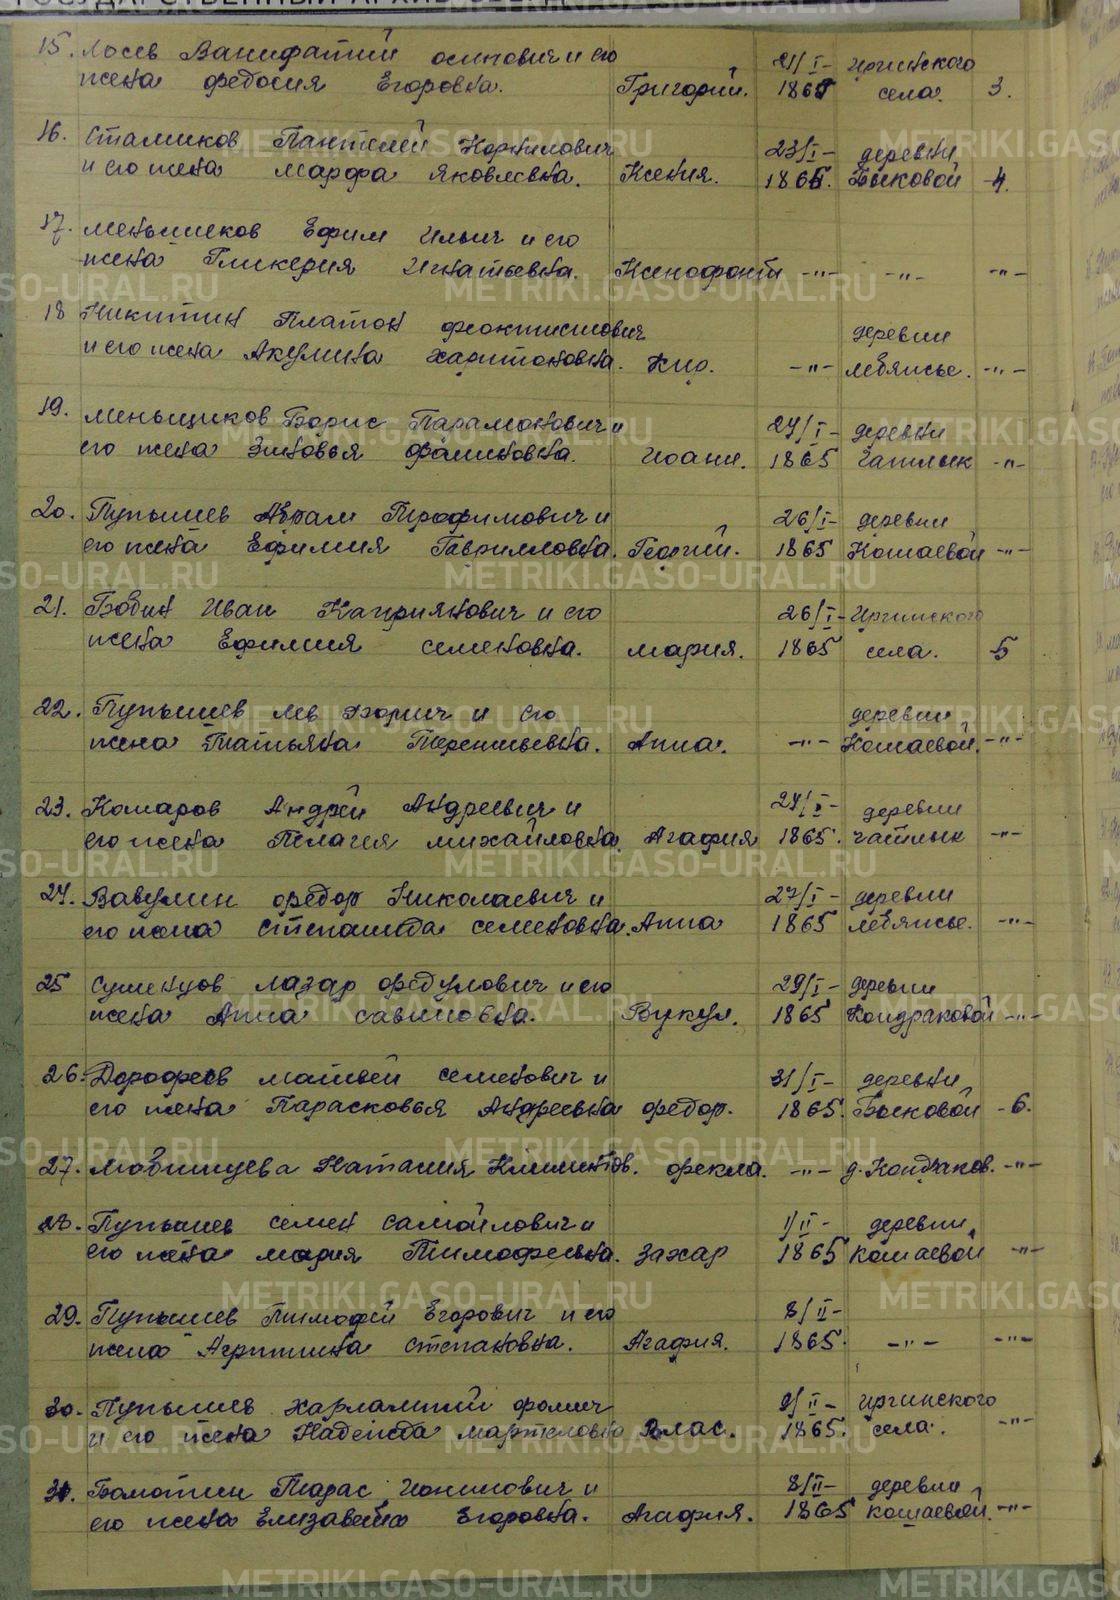 ГОСУДАРСТВЕННЫЙ АРХИВ СВЕРД
15. Лосев Ванифатий осипович и его
жена федосия Егоровна. Григорий. 21/I- 1865 иргинского села. 3.
16. Сталиков Пантелей Корнилович
и его жена марфа яковлевна. Ксения. 23/I- 1865. деревни Быковой -4.
17. меньшиков Ефим Ильич и его
жена Гликерия Игнатьевна. Ксенофонт -"- -"- -"-
18 Никитин Платон феоктистович
и его жена Акулина харитоновна. Кир. -"- деревни лебяжье. -"-
19. меньщиков Борис Парамонович и
его жена Зиновья фалиновна. иоанн. 24/I- 1865 деревни Чатлык -"-
20. Пупышев Абрам Трофимович и
его жена Ефимия Гавриловна. Георгий. 26/I- 1865 деревни Кошаевой -"-
21. Бобин Иван Каприянович и его
жена Ефимия семеновна. мария. 26/I- 1865 Иргинского села. 5
22. Пупышев лев Борич и его
жена Татьяна Терентьевна. Анна. -"- деревни Кошаевой. -"-
23. Комаров Андрей Андреевич и
его жена Пелагея михайловна. Агафия 24/I- 1865. деревни чатлык -"-
24. Вавулин федор Николаевич и
его жена Степанида семеновна. Анна 27/I- 1865 деревни лебяжье. -"-
25 сушенцов лазар федулович и его
жена Анна савиновна. Вукул. 29/I- 1865 деревни Кондраковой -"-
26. Дорофеев матвей семенович и
его жена Парасковья Андреевна федор. 31/I- 1865. деревни Быковой -6.
27. Наталия Климентов. фекла. -"- д. Кондраков. -"-
28. Пупышев семен самойлович и
его жена мария Тимофеевна. захар 1/II- 1865 деревни кошаевой -"-
29. Пупышев Тимофей Егорович и его
жена Агрипина степановна. Агафия. 8/II- 1865. -"- -"-
30. Пупышев харлампий фомич
и его жена Надежда мартеловна Влас. 9/II- 1865. иргинского села. -"-
31. Болотин Тарас и
его жена Елизавета Егоровна. Агафия. 8/II- 1865 деревни кошаевой. -"-
METRIKI.GASO-URAL.RU